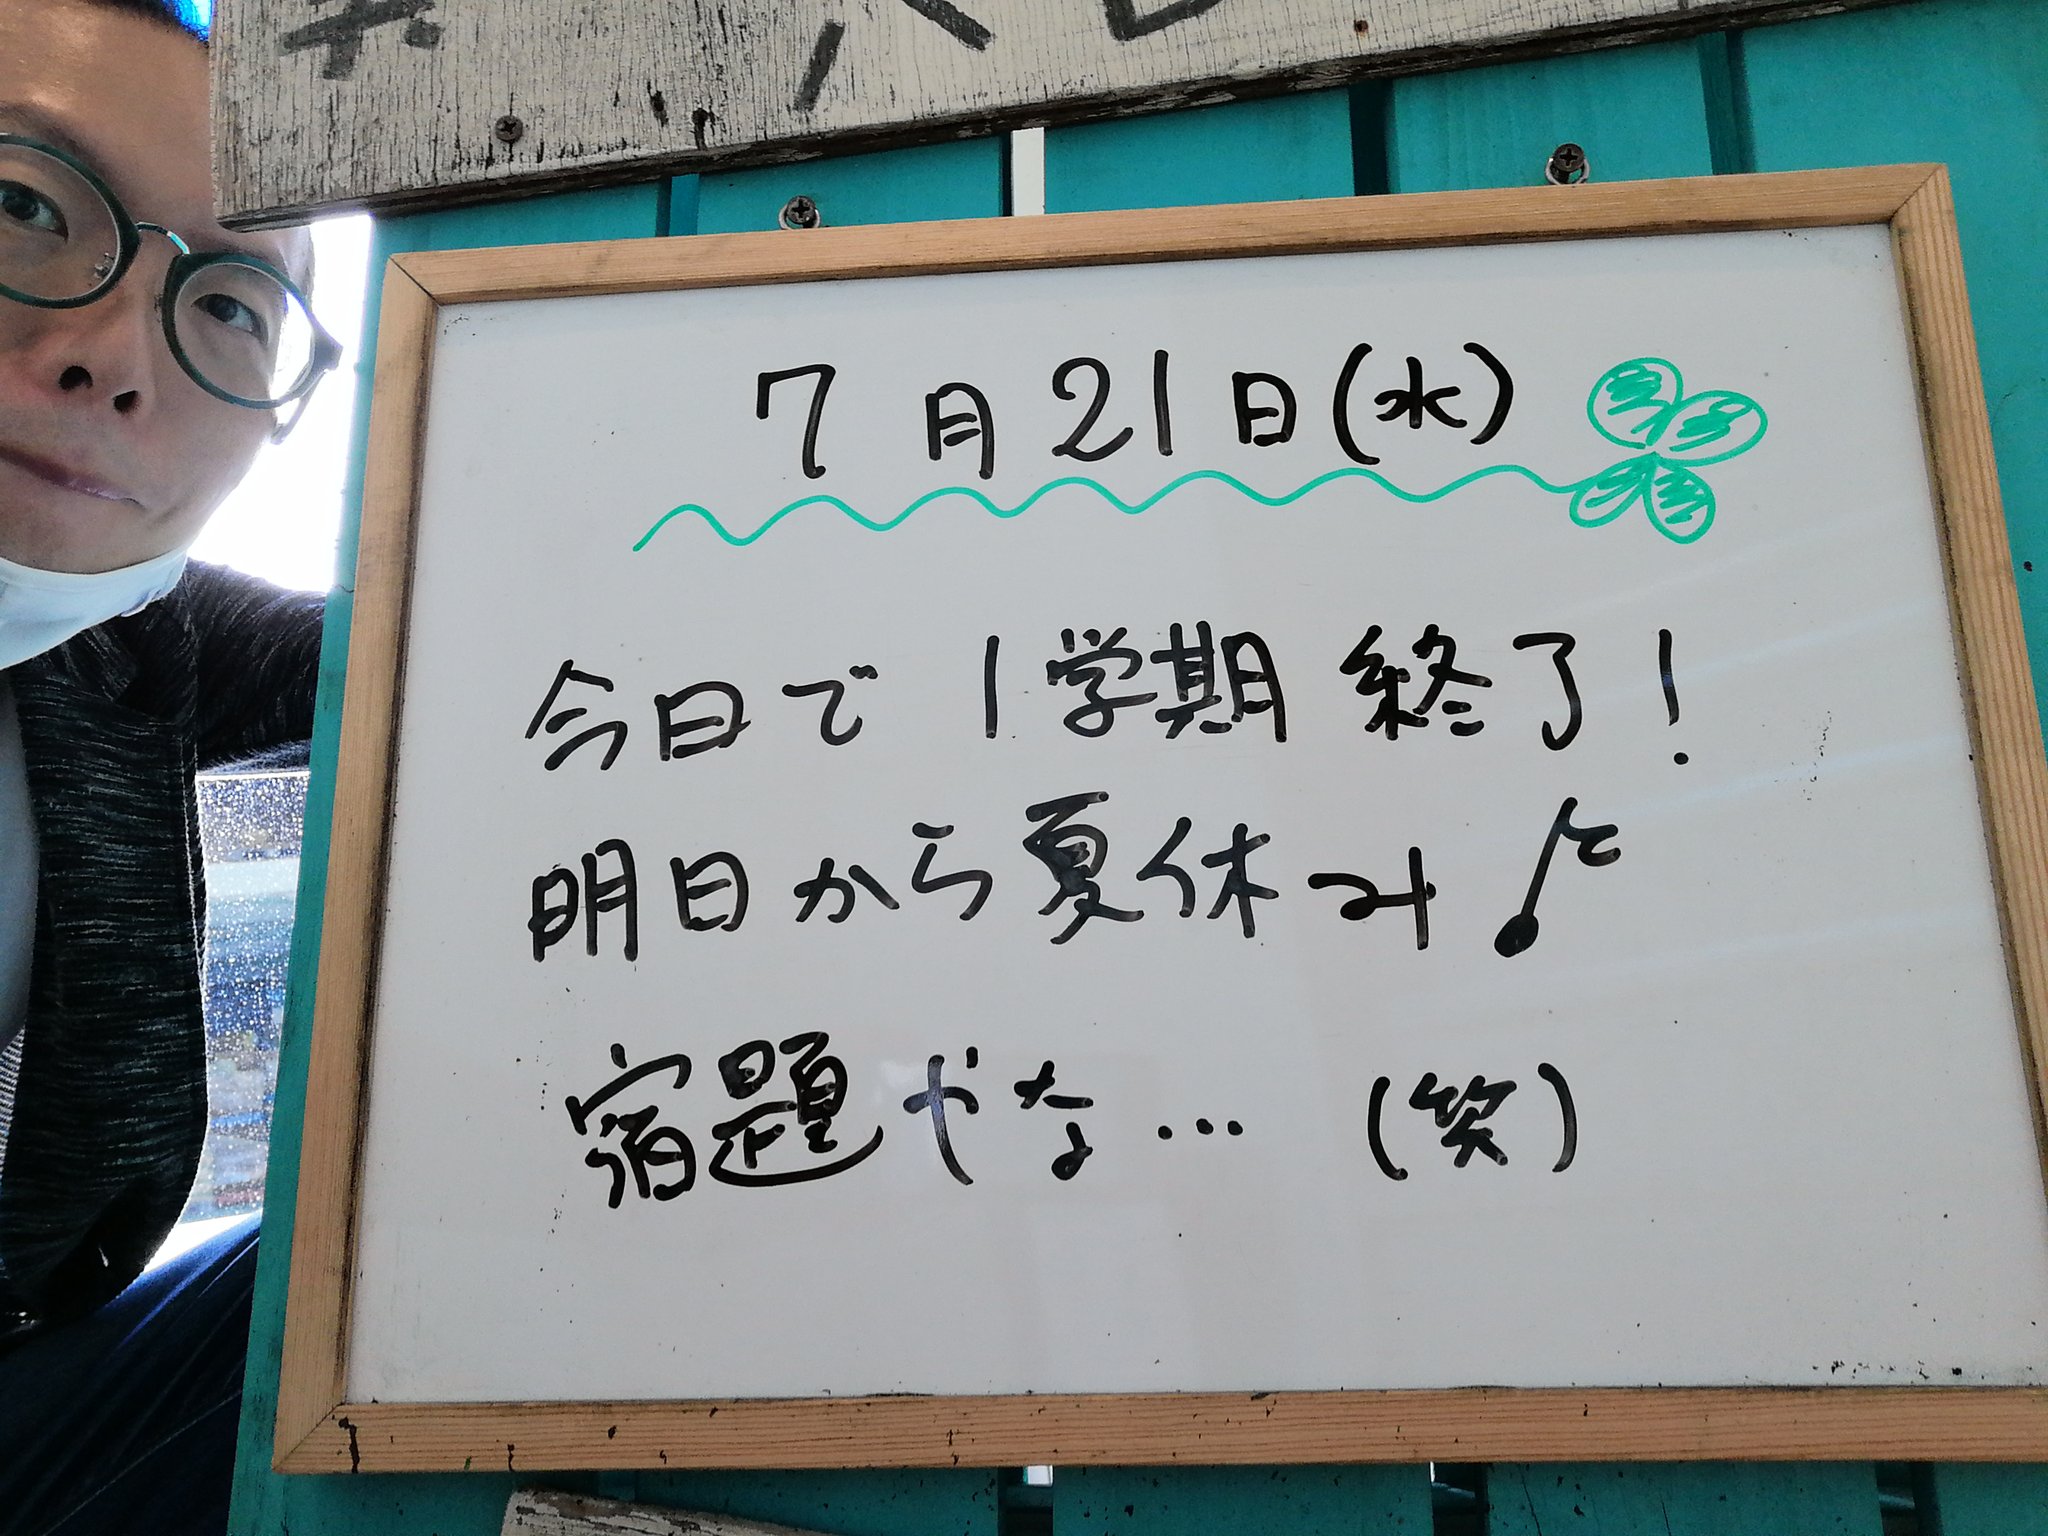 7月21日(水)
今日で1学期終了!
明日から夏休み♪
宿題やな…(笑)